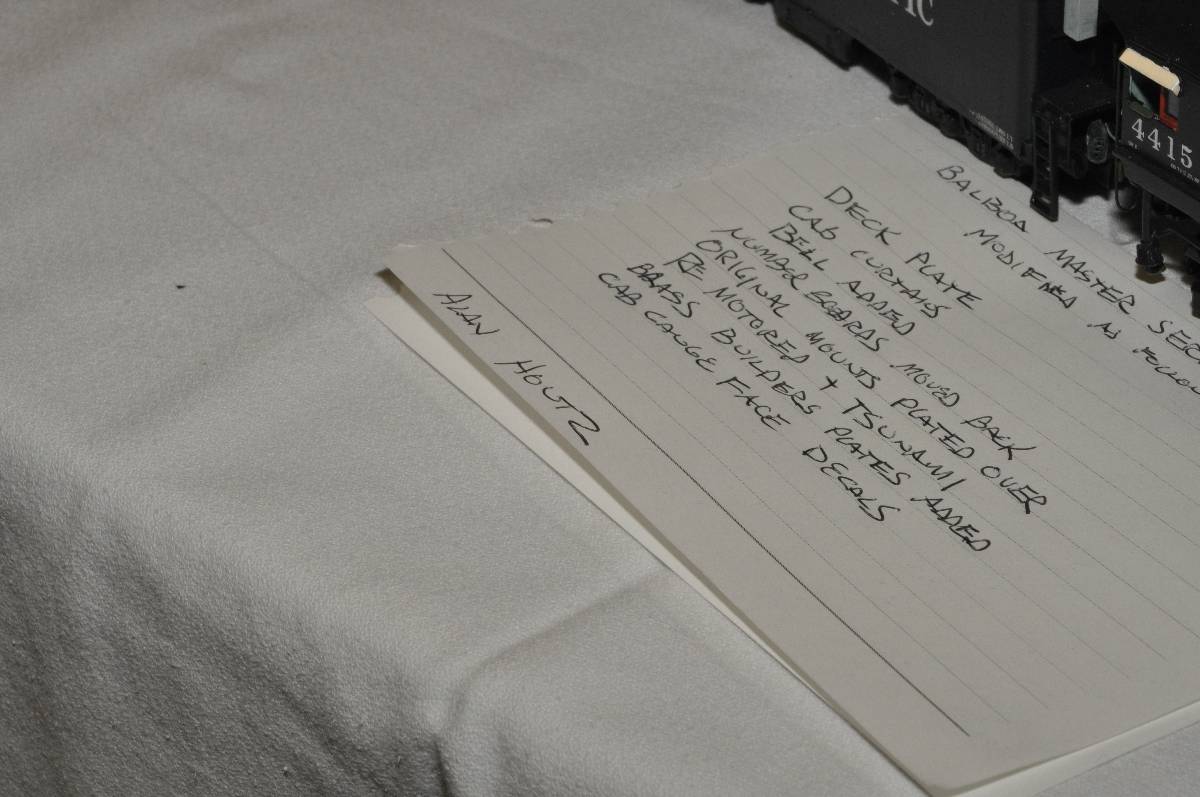 BALBOA MASTER SER
MODIFIED AS FOLLOW
DECK PLATE
CAB CURTAINS
BELL ADDED
NUMBER BOARDS MOVED BACK
ORIGINAL MOUNTS PLATED OVER
RE MOTORED + TSUNAMI
BRASS BUILDERS PLATES ADDED
CAB GAUGE FACE DECALS
ALAN HOUTZ
4415